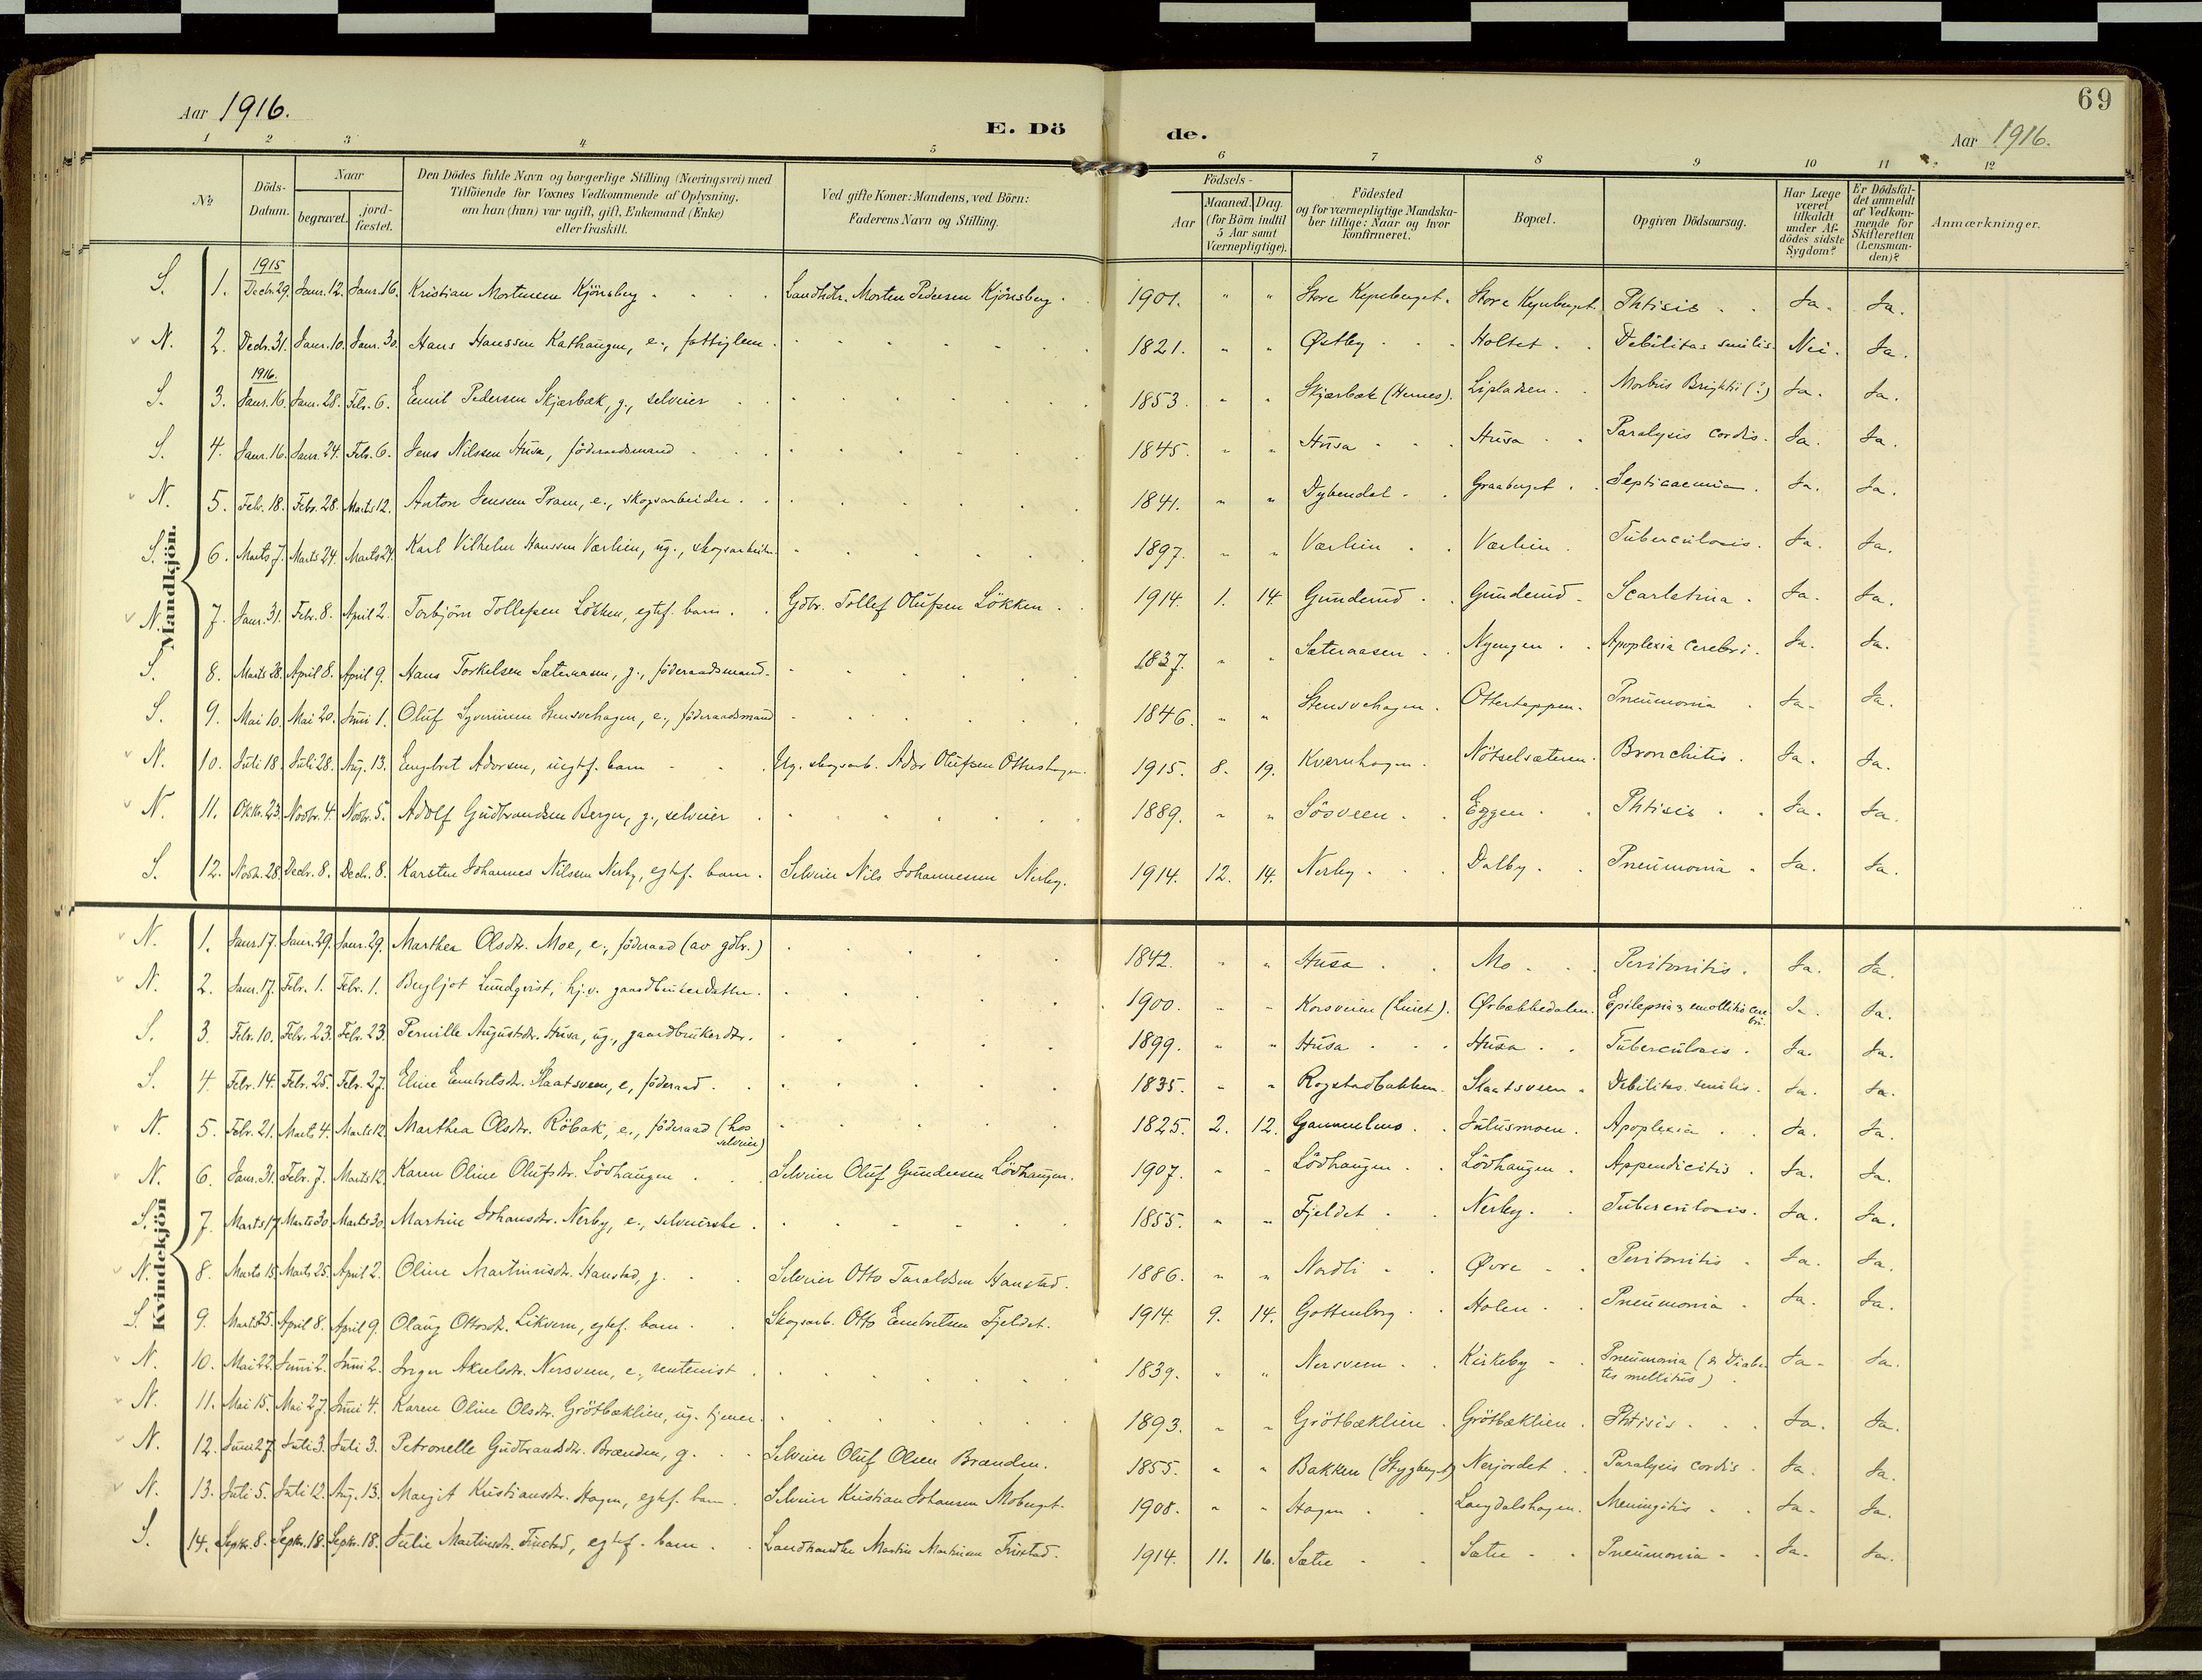 69
Aar 1916. E. Dö de. Aar 1916.
1 2 3 4 5 6 7 8 9 10 11 12
No
Döds-Datum.
Naar
begravet.
jord-fæstet.
Den Dödes fulde Navn og borgerlige Stilling (Næringsvei) med
Tilföiende for Voxnes Vedkommende af Oplysning,
om han (hun) var ugift, gift, Enkemand (Enke)
eller fraskilt.
Ved gifte Koner: Mandens, ved Börn:
Faderens Navn og Stilling.
Födsels-
Aar
Maaned. Dag.
(for Börn indtil
5 Aar samt
Værnepligtige).
Födested
og for værnepligtige Mandska-
ber tillige: Naar og hvor
konfirmeret.
Bopæl.
Opgiven Dödsaarsag.
Har Læge
været
tilkaldt
under Af-
dödes sidste
Sygdom?
Er Dödsfal-
det anmeldt
af Vedkom-
mende for
Skifteretten
(Lensman-
den)?
Anmærkninger.
Mandkjön.
1915
S. 1. Decbr. 29. Janr. 12. Janr. 16. Kristian Mortensen Kjönsberg Landhdr. Morten Pedersen Kjönsberg. 1901. " " Store Kynberget. Store Kynberget. Phtisis Ja. Ja.
N. 2. Decbr. 31. Janr. 10. Janr. 30. Hans Hanssen Kathaugen, e., fattiglem. 1821. " " Østby Holtet. Debilitas senilis. Nei. Ja.
1916.
S. 3. Janr. 16. Janr. 28. Febr. 6. Emil Pedersen Skjærbæk, g., selveier 1853. " " Skjærbæk (Hernes). Lipladsen. Morbus Brightii (?) Ja. Ja.
S. 4. Janr. 16. Janr. 24. Febr. 6. Jens Nilssen Husa, föderaadsmand 1845. " " Husa Husa Paralysis cordis. Ja. Ja.
N. 5. Febr. 18. Febr. 28. Marts 12. Anton Jensen Pram, e., skogsarbeider. 1841. " " Dybendal. Graaberget. Septicaemia. Ja. Ja.
S. 6. Marts 7. Marts 24. Marts 24. Karl Vilhelm Hanssen Værlien, ug., skogsarbeider. 1897. " " Værlien Værlien. Tuberculosis. Ja. Ja.
N. 7. Janr. 31. Febr. 8. April 2. Torbjörn Tollefsen Lökken, egtef. barn. Gdbr. Tollef Olufsen Lökken. 1914. 1. 14. Gunderud Gunderud Scarlatina. Ja. Ja.
S. 8. Marts 28. April 8. April 9. Hans Torkelsen Sæteraasen, g., föderaadsmand. 1837. " " Sæteraasen Nyengen Apoplexia cerebri. Ja. Ja.
S. 9. Mai 10. Mai 20. Juni 1. Oluf Syversen Stensvehagen, e., föderaadsmand 1846. " " Stensvehagen. Ottertoppen. Pneumonia Ja. Ja.
N. 10. Juli 18. Juli 28. Aug. 13. Engebret Adorsen, uegtef. barn Ug. skogsarb. Ador Olufsen Ottershagen. 1915. 8. 19. Kværnhagen. Nötselsæteren. Bronchitis. Ja. Ja.
N. 11. Oktbr. 23. Novbr. 4. Novbr. 5. Adolf Gudbrandsen Berger, g., selveier 1889. " " Söoveen. Eggen Phtisis Ja. Ja.
S. 12. Novbr. 28. Decbr. 8. Decbr. 8. Karsten Johannes Nilssen Nerby, egtef. barn. Selveier Nils Johannessen Nerby. 1914. 12. 14. Nerby Dalby. Pneumonia Ja. Ja.
Kvindekjön
N. 1. Janr. 17. Janr. 29. Janr. 29. Marthea Olsdtr. Moe, e., föderaad (av gdbr.) 1842. " " Husa Mo Peritonitis. Ja. Ja.
N. 2. Janr. 17. Febr. 1. Febr. 1. Bergljot Lundqvist, hj.v. gaardbrukerdatter. 1900. " " Korsveien (Luset). Ørbækkedalen. Epilepsia & emollitio cerebri. Ja. Ja.
S. 3. Febr. 10. Febr. 23. Febr. 23. Pernille Augustdtr. Husa, ug., gaardbrukerdtr. 1899. " " Husa Husa Tuberculosis. Ja. Ja.
S. 4. Febr. 14. Febr. 25. Febr. 27. Eline Embretsdtr. Slaatsveen, e, föderaad. 1835. " " Rogstadbakken. Slaatsveen. Debilitas senilis. Ja. Ja.
N. 5. Febr. 21. Marts 4. Marts 12. Marthea Olsdtr. Röbæk, e., föderaad (hos selveier) 1825. 2. 12. Gammelmo Juliusmoen. Apoplexia Ja. Ja.
N. 6. Janr. 31. Febr. 7. Marts 12. Karen Oline Olufsdtr. Lövhaugen Selveier Oluf Gundersen Lövhaugen. 1907. " " Lövhaugen Lövhaugen. Appendicitis. Ja. Ja.
S. 7. Marts 17. Marts 30. Marts 30. Martine Johansdtr. Nerby, e., selveierske. 1855. " " Fjeldet Nerby. Tuberculosis. Ja. Ja.
N. 8. Marts 15. Marts 25. April 2. Oline Martinusdtr. Hanstad, g. Selveier Otto Taraldsen Hanstad. 1886. " " Nordli Øvre Peritonitis Ja. Ja.
S. 9. Marts 25. April 8. April 9. Olaug Ottosdtr. Likvern, egtef. barn. Skogsarb. Otto Embretsen Fjeldet. 1914. 9. 14. Gottenborg Holen Pneumonia Ja. Ja.
N. 10. Mai 22. Juni 2. Juni 2. Inger Akselsdtr. Nersveen, e., rentenist 1839. " " Nersveen Kirkeby Pneumonia (& Diabetes mellitus) Ja. Ja.
N. 11. Mai 15. Mai 27. Juni 4. Karen Oline Olsdtr. Grötbæklien, ug. tjener. 1893. " " Grötbæklien. Grötbæklien. Phtisis Ja. Ja.
N. 12. Juni 27. Juli 3. Juli 3. Petronelle Gudbrandsdtr. Brænden, g. Selveier Oluf Olsen Brænden. 1855. " " Bakken (Stygberget) Nerjordet Paralysis cordis. Ja. Ja.
N. 13. Juli 5. Juli 12. Aug. 13. Margit Kristiansdtr. Hagen, egtef. barn. Selveier Kristian Johansen Moberget. 1908. " " Hagen Langdalshagen. Meningitis Ja. Ja.
S. 14. Septr. 8. Septr. 18. Septr. 18. Julie Martinsdtr. Finstad, egtef. barn. Landhandler Martin Martinsen Finstad. 1914. 11. 16. Sætre Sætre Pneumonia Ja. Ja.